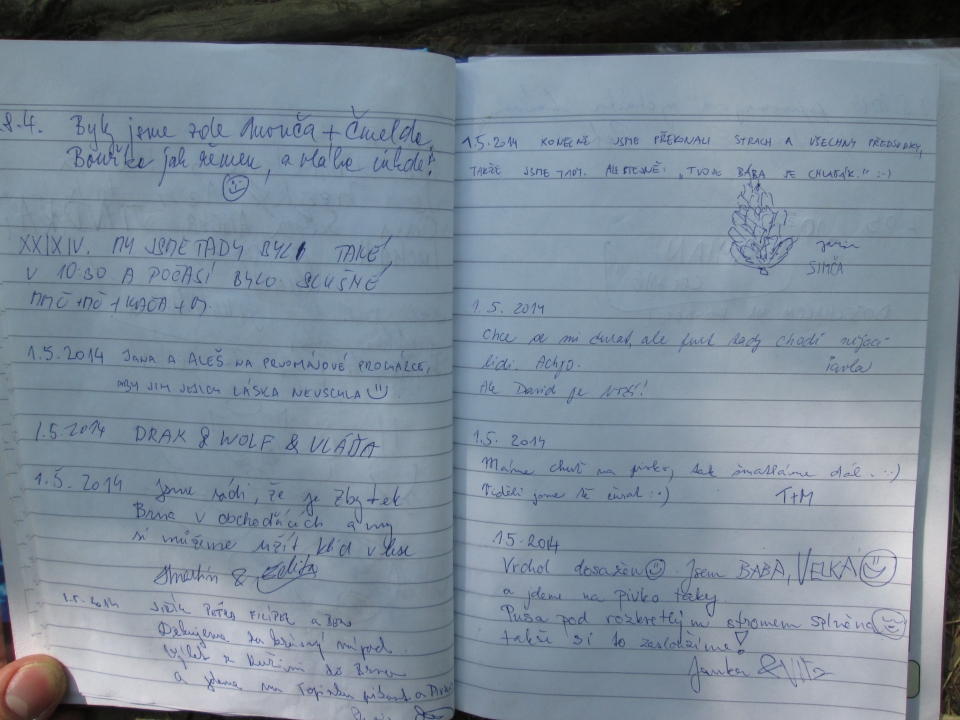 8.4. Byli jsme zde + Čmelda
Bouřka jak řemen, a nikde!
XXIXIV. MY JSME TADY BYLI TAKÉ
V 10:30 A POČASÍ BYLO SLUŠNÉ
+ KAČA +
1.5.2014 JANA A ALEŠ NA PRVOMÁJOVÉ PROCHÁZCE,
ABY JIM JEJICH LÁSKA NEUSCHLA
1.5.2014 DRAK & WOLF & VLÁĎA
1.5.2014 Jsme rádi, že je zbytek
Brna v obchoďácích a my
si můžeme užít klid v lese
Martin &
1.5.2014 PEŤKO FILÍPEK a
Děkujeme za nápad
výlet z Kuřimi do Brna
a jdeme na
1.5.2014 KONEČNĚ JSME PŘEKONALI STRACH A VŠECHNY PŘEDSUDKY,
TAKŽE JSME TADY. ALE STEJNĚ: „TVOJE BÁBA JE CHLAPÁK." :-)
SIMČA
1.5. 2014
Chce se mi čurat, ale furt tady chodí nějací
lidi. Achjo. Pavla
Ale David je
1.5. 2014
Máme chuť na pivko, tak šmatláme dál. :-)
Viděli jsme tě čurat :-) T+M
1.5.2014
Vrchol dosažen Jsem BABA, VELKÁ
a jdeme na pivko taky
Pusa pod rozkvetlým stromem splněna
takže si to zasloužíme!
Janka & Víťa